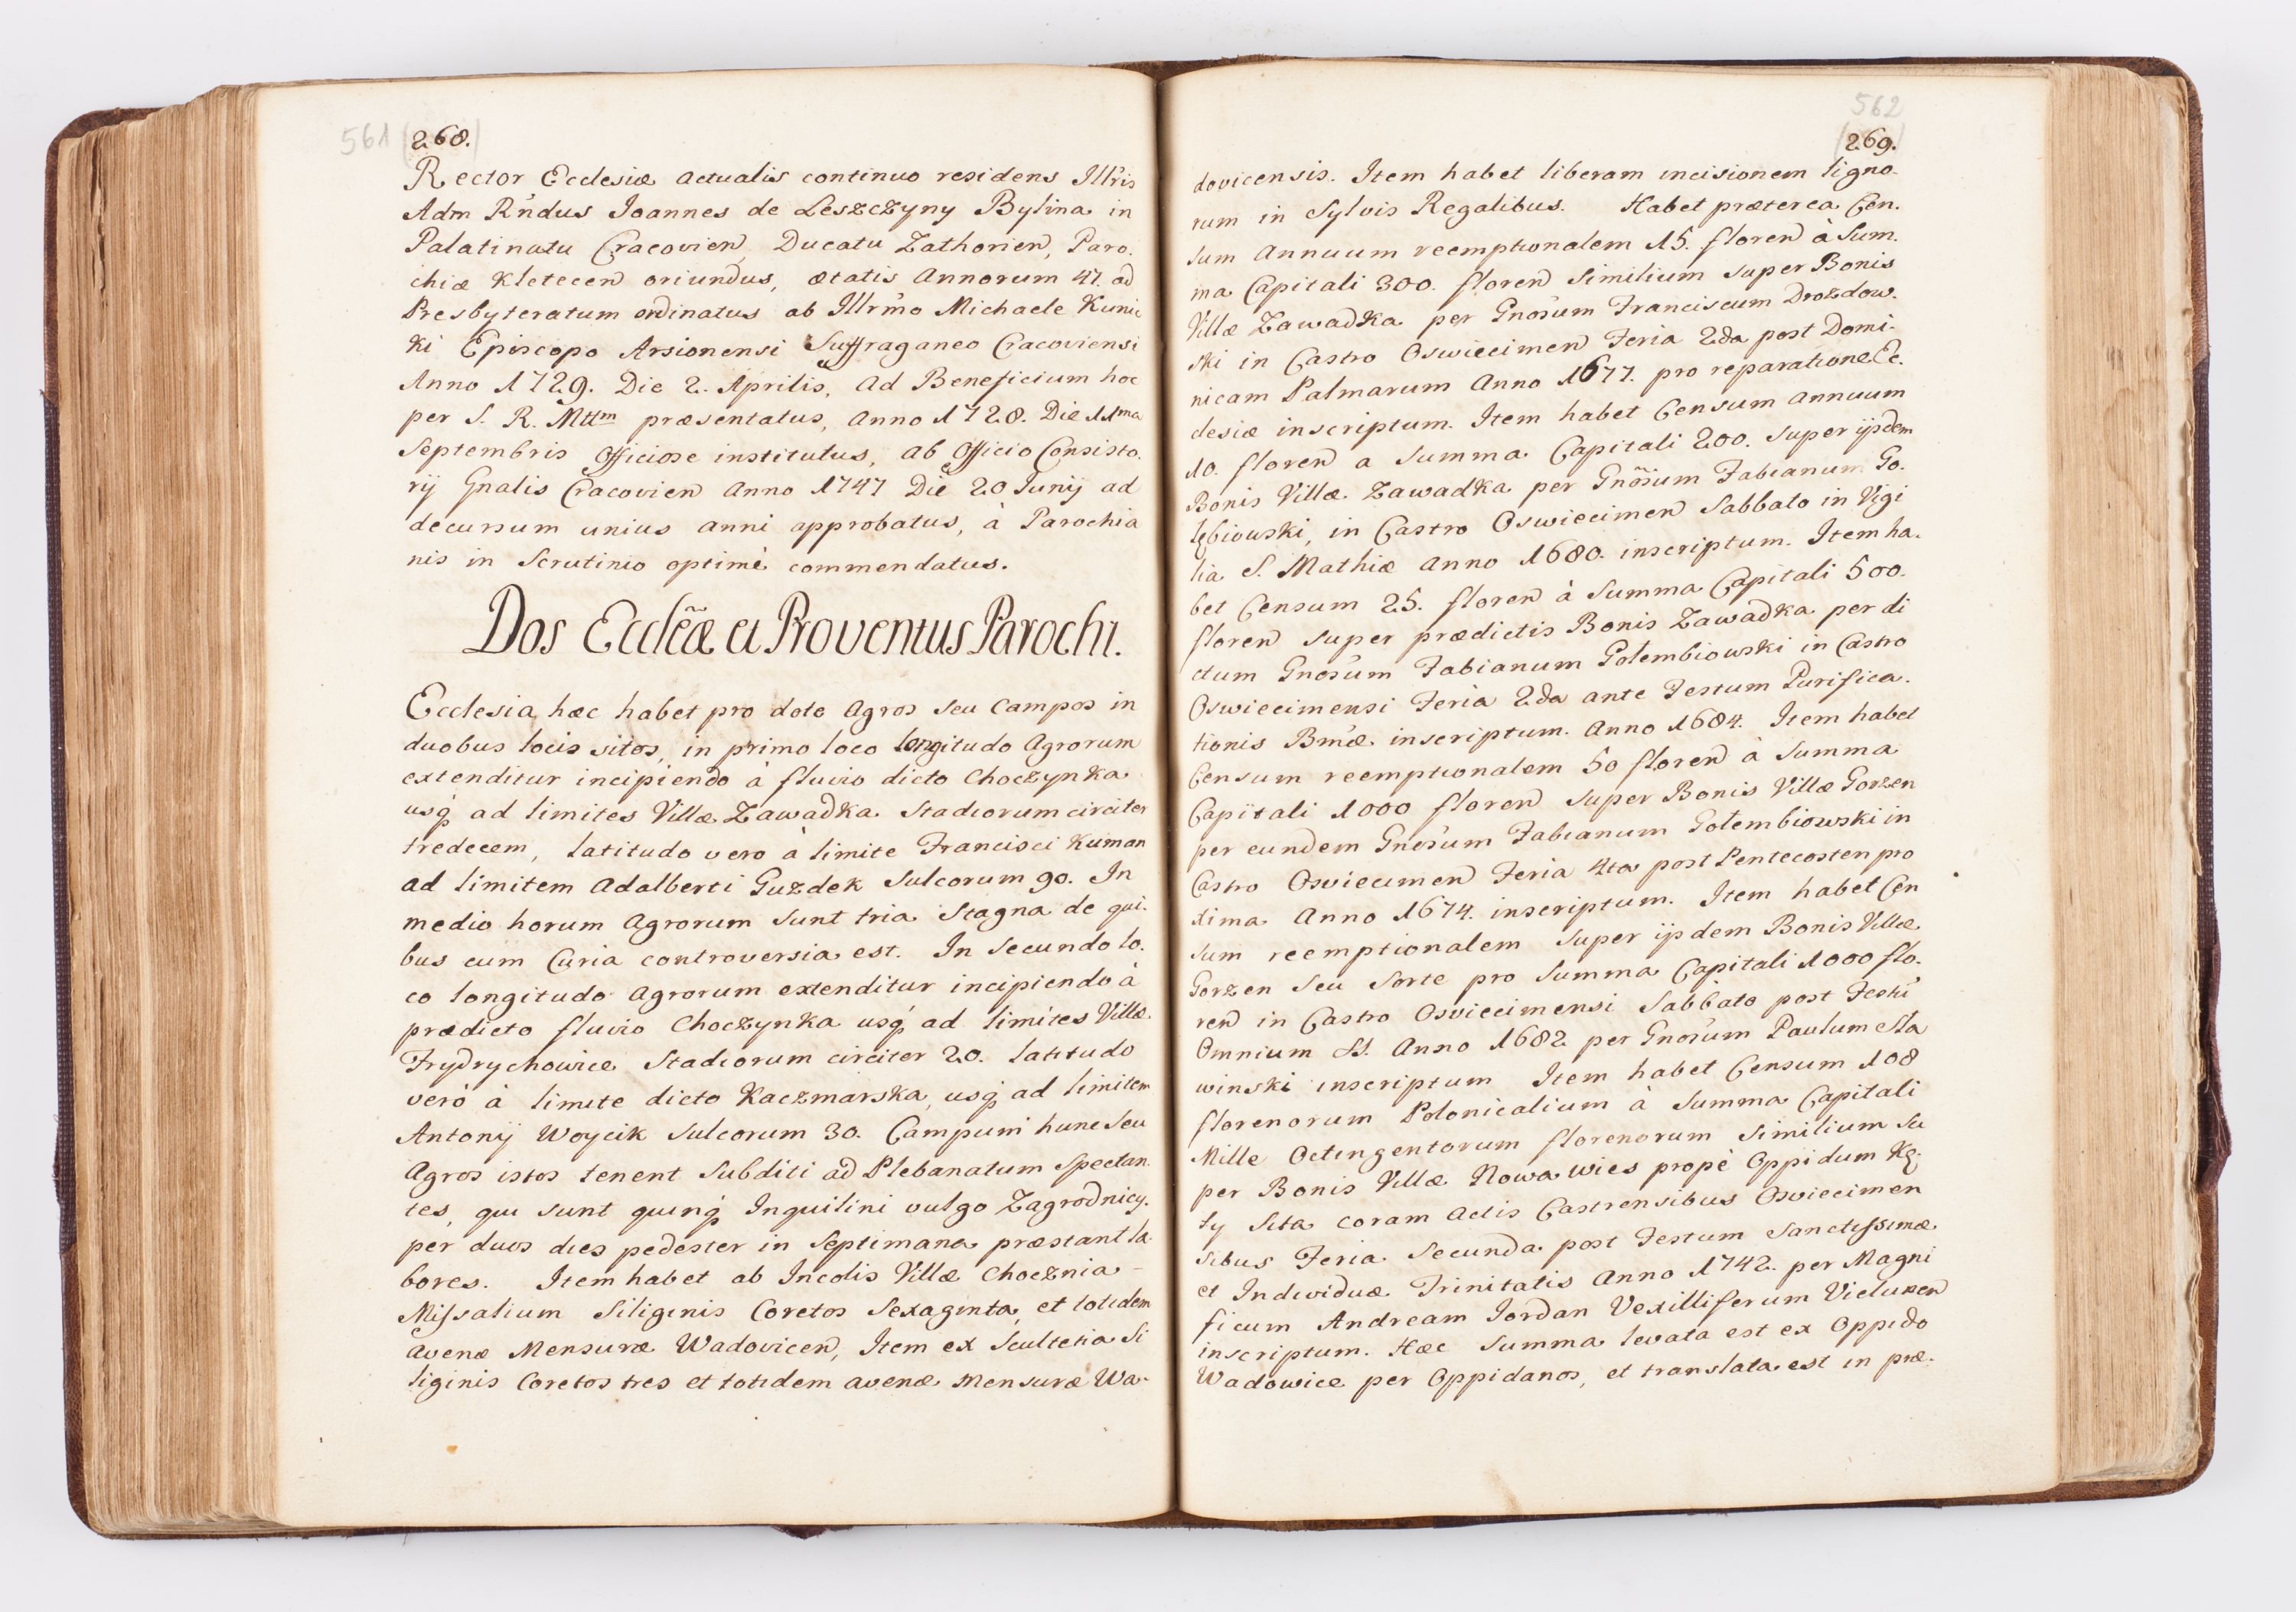 561 (268.)
Rector Ecclesiæ actualis continuo residens Illris
Adm Rndus Joannes de Leszczyny Bylina in
Palatinatu Cracovien, Ducatu Zathorien, Paro.
chiæ Kletecen oriundus, ætatis Annorum 47. ad
Presbyteratum ordinatus ab Illrmo Michaele Kunic
ki Episcopo Arsionensi Suffraganeo Cracoviensi
Anno 1729. Die 2. Aprilis, ad Beneficium hoc
per S. R. Mttm præsentatus, anno 1728. Die 11ma
Septembris Officiose institutus, ab Officio Consisto.
rij Gnalis Cracovien Anno 1747 Die 20 Junij ad
decursum unius anni approbatus, à Parochia
nis in Scrutinio optimè commendatus.
Dos Ecclẽæ et Proventus Parochi.
Ecclesia hæc habet pro dote Agros seu Campos in
duobus locis sitos, in primo loco longitudo Agrorum
extenditur incipiendo à fluvio dicto Choczynka
usq ad limites Villæ Zawadka Stadiorum circiter
tredecem, latitudo vero à limite Francisci Kuman
ad limitem Adalberti Guzdek Sulcorum 90. In
medio horum Agrorum sunt tria Stagna de qui.
bus cum Curia controversia est. In Secundo lo.
co longitudo Agrorum extenditur incipiendo à
prædicto fluvio Choczynka usq ad limites Villæ
Frydrychowice Stadiorum circiter 20. latitudo
verò à limite dicto Kaczmarska, usq ad limitem
Antonij Woycik Sulcorum 30. Campum hunc seu
Agros istos tenent Subditi ad Plebanatum Spectan
tes, qui sunt quinq Inquilini vulgo Zagrodnicy.
per duos dies pedester in Septimana præstant la
bores. Item habet ab Incolis Villæ Chocznia -
Missalium Siliginis Coretos Sexaginta, et totidem
avenæ Mensuræ Wadovicen, Item ex Scultetia Si
liginis Coretos tres et totidem avenæ Mensuræ Wa-
562
(269.)
dovicensis. Item habet liberam incisionem ligno-
rum in Sylvis Regalibus. Habet præterea Cen.
sum Annuum reemptionalem 15. floren à Sum.
ma Capitali 300. floren Similium super Bonis
Villæ Zawadka per Gnosum Franciscum Drozdow.
ski in Castro Oswiecimen Feria 2da post Domi-
nicam Palmarum Anno 1677. pro reparatione Ec.
clesiæ inscriptum. Item habet Censum annuum
10. floren a Summa Capitali 200. super ijsdem
Bonis Villæ Zawadka per Gnosum Fabianum Go.
lębiowski, in Castro Oswiecimen Sabbato in Vigi
lia S. Mathiæ anno 1680. inscriptum. Item ha.
bet Censum 25. floren à Summa Capitali 500.
floren super prædictis Bonis Zawadka per di
ctum Gnosum Fabianum Golembiowski in Castro
Oswiecimensi Feria 2da ante Festum Purifica.
tionis Bmæ inscriptum. Anno 1684. Item habet
Censum reemptionalem 50 floren à Summa
Capitali 1000 floren super Bonis Villæ Gorzen
per eundem Gnosum Fabianum Golembiowski in
Castro Osviecimen Feria 4ta post Pentecosten pro
xima Anno 1674. inscriptum. Item habet Cen
sum reemptionalem super ijsdem Bonis Villæ
Gorzen seu Sorte pro Summa Capitali 1000 flo.
ren in Castro Osviecimensi Sabbato post Festi
Omnium SS. Anno 1682 per Gnosum Paulum Sla
winski inscriptum Item habet Censum 108
florenorum Polonicalium à Summa Capitali
Mille Octingentorum florenorum Similium su
per Bonis Villæ Nowa wies propè Oppidum Kę.
ty sita coram actis Castrensibus Osviecimen
sibus Feria Secunda post Festum Sanctissimæ
et Individuæ Trinitatis Anno 1742. per Magni
ficum Andream Jordan Vexilliferum Vielunen
inscriptum. Hæc Summa levata est ex Oppido
Wadowice per Oppidanos, et translata est in præ-